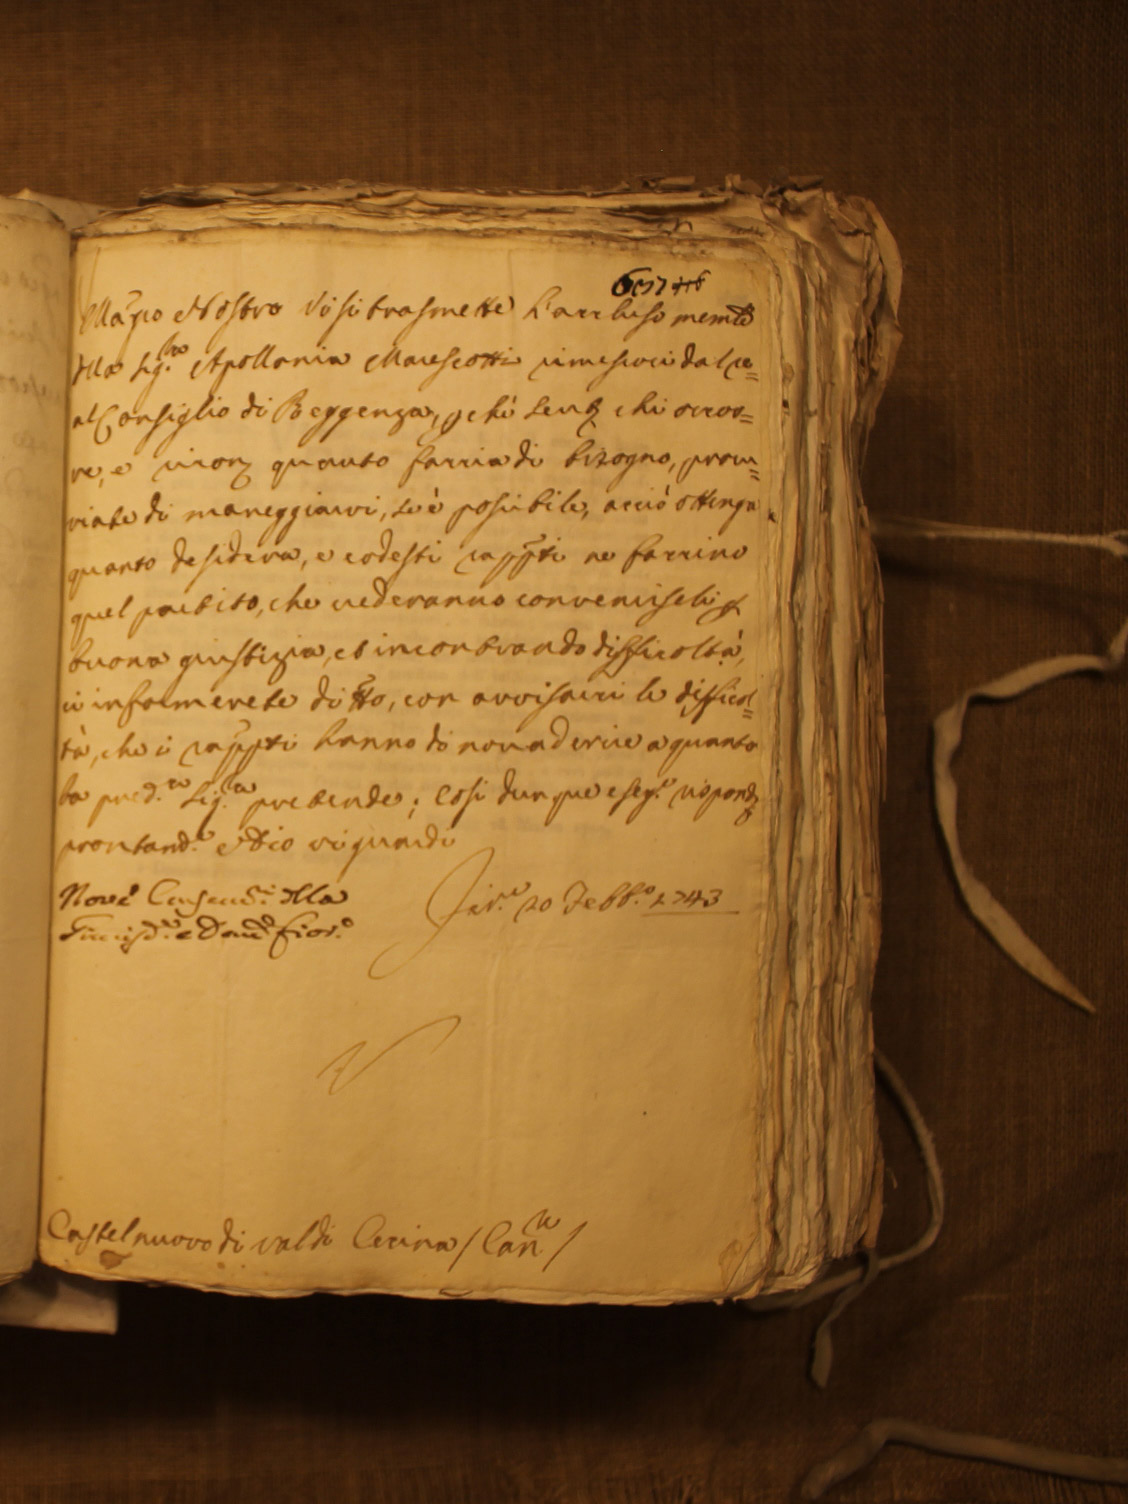 Mag.co Nostro Vi si trasmette l'accluso mem.le
d̃lla Sig.ra Apollonia Marescotti rimessoci dal re=
al Consiglio di Reggenza, p̱chè sent.e chi occor=
re, e vison.e quanto faccia di bisogno, procu=
riate di maneggiarvi, se è possibile, acciò ottenga
quanto desidera, e codesti rapp̃ti ne faccino
quel partito, che vederanno convenirseli p̱
buona giustizia, et incontrando difficoltà,
ci informerete di tt̃o, con avvisarci le difficol=
tà, che i rapp̃ti hanno di non aderire a quanto
la pred.a Sig.ra pretende; Così dunque eseg.e rispond.e
prontam.e e Dio vi guardi
Nove Cons.ri d̃lla
Giurisd.ne e Dom.o Fior.o
Fir.e 20 Febb.o 1743
Castelnuovo di val di Cecina / Can.re /